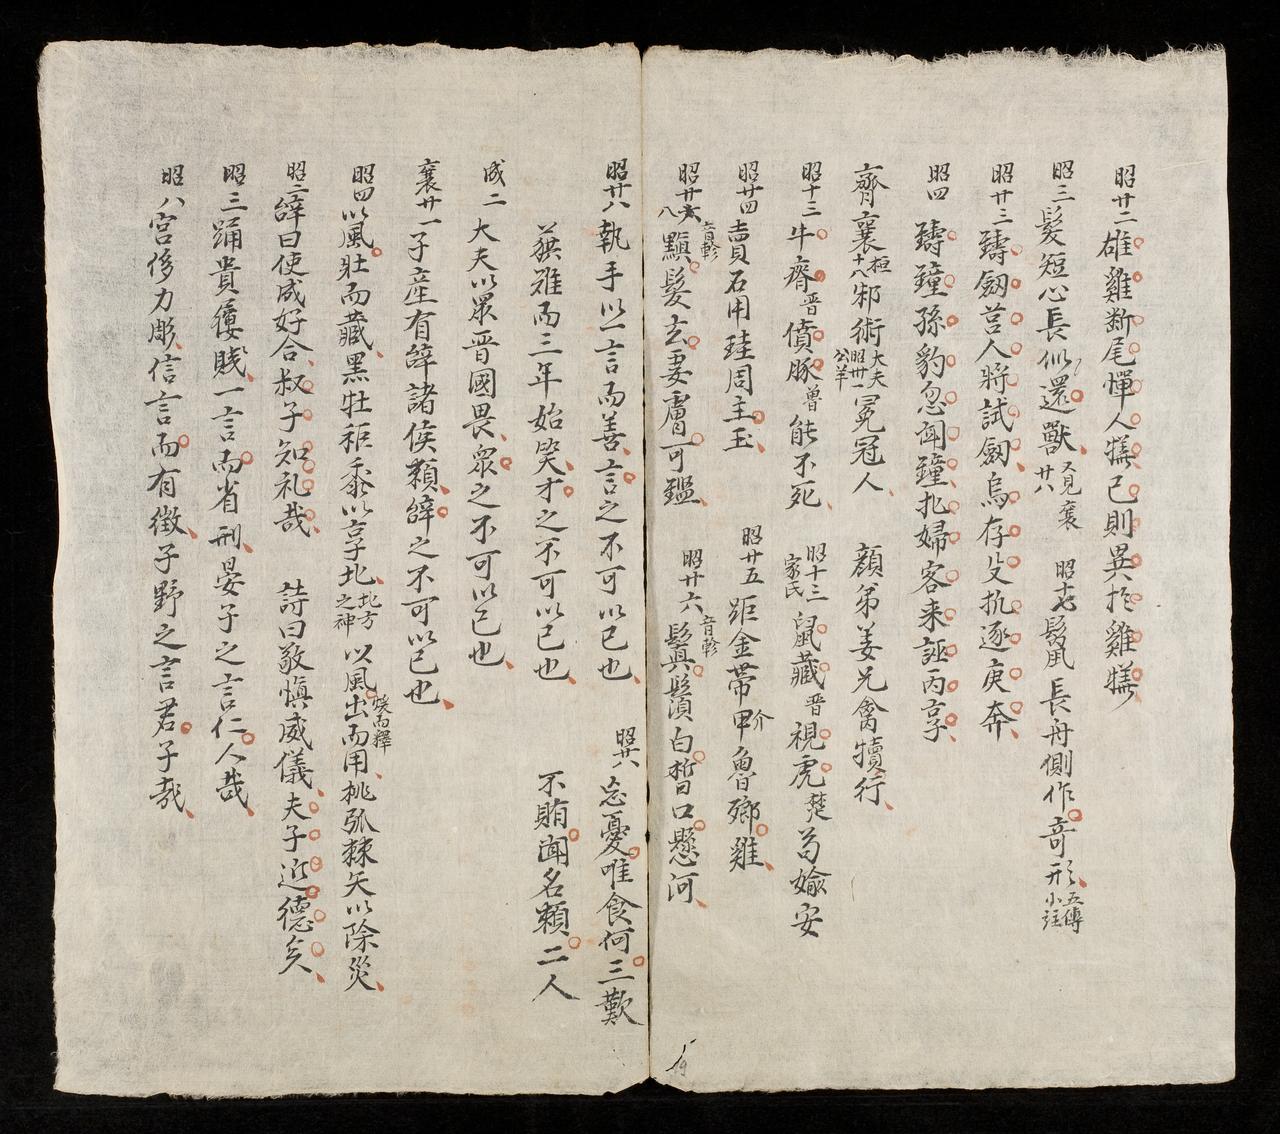 昭廿二雄雞斷尾憚人犧己則異扵雞犧
昭三髮短心長似還獸又見襄廿八 昭十七鬣 長舟側作奇形五傳小註
昭廿三鑄劔莒人將試劔烏存殳抗逐庚奔
昭四鑄鐘孫豹忽聞鐘北婦客来誣丙享
齊襄桓十八邪術大夫昭廿一公羊冕冠人 顏弟姜兄禽犢行
昭十三牛瘠晋僨豚魯能不死 昭十三家氏鼠藏晋視虎楚芶媮安
昭廿四賣石用珪周主玉 昭廿五距金帶甲介魯郷雞
昭廿八黰音軫髮玄妻膚可鑑 昭廿六鬒音軫鬚須白晳口懸河
昭廿八執手以一言而善言之不可以已也 昭廿八忘憂唯食何三歎
蔡雖而三年始笑才之不可以已也 不賄聞名賴二人
成二大夫以眾晋國畏眾之不可以已也
襄廿一子産有辝諸侯賴辝之不可以已也
昭四以風壯而藏黑牡秬黍以享北北方之神以風出而用桃弧棘矢以除災
昭二辝曰使成好合叔子知礼哉 詩曰敬慎威儀夫子近德矣
昭三踊貴屨賤一言而省刑晏子之言仁人哉
昭八宮侈力彫信言而有徵子野之言君子哉